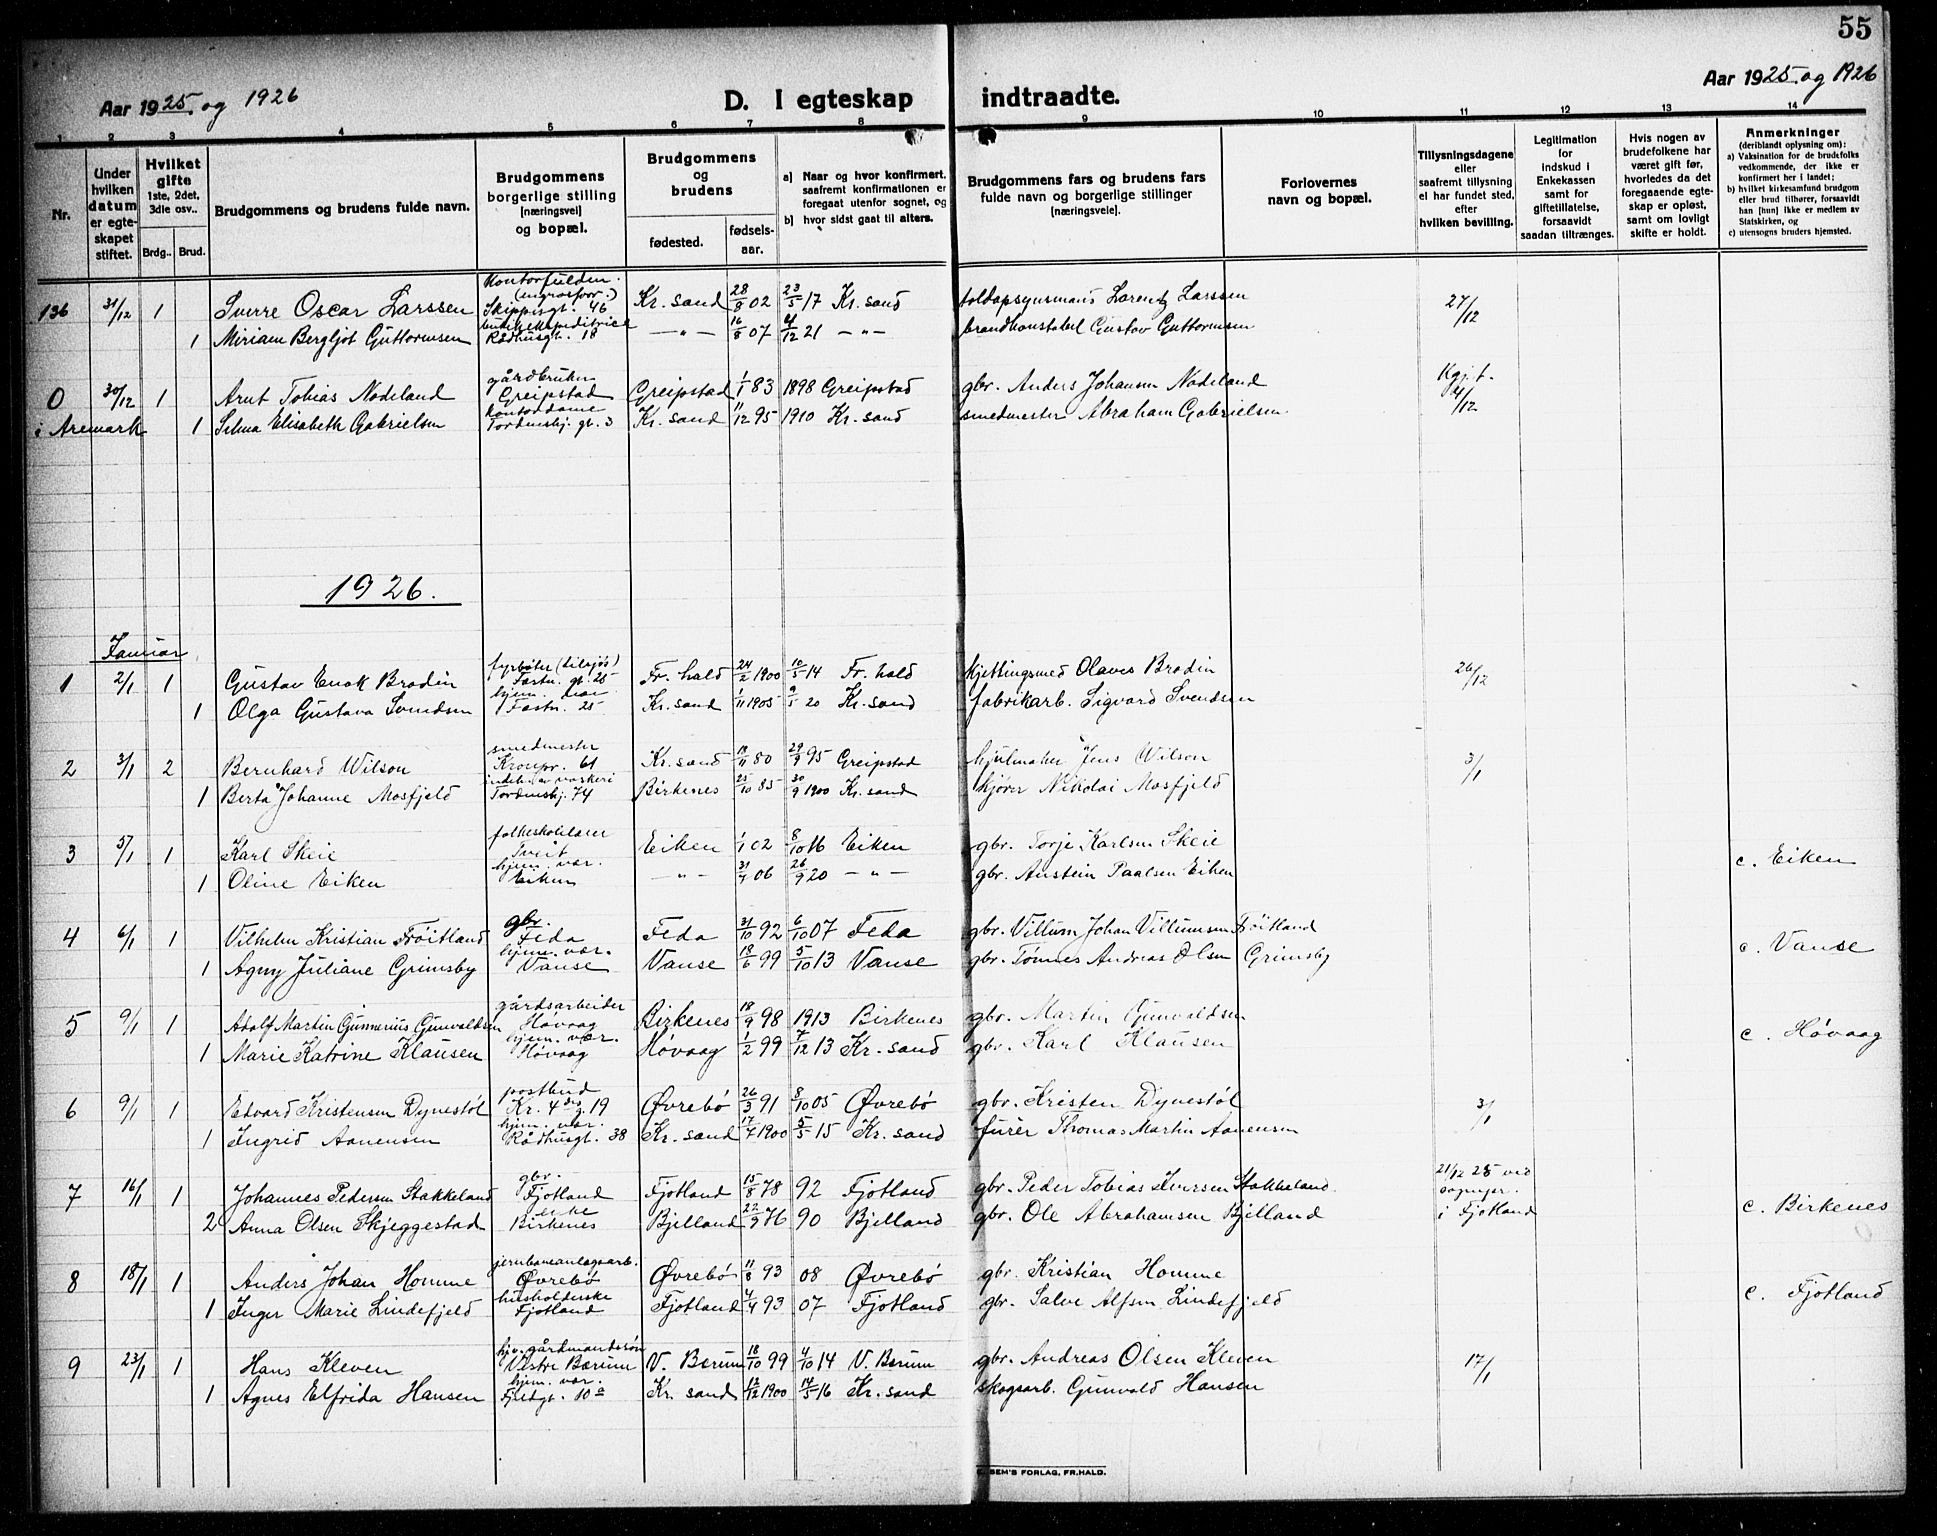 55
Aar 1925 og 1926
D. I egteskap indtraadte.
Aar 1925 og 1926
1 2 3 4 5 6 7 8 9 10 11 12 13 14
Nr.
Under hvilken datum er egteskapet stiftet.
Hvilket gifte 1ste, 2det, 3die osv..
Brdg.. Brud.
Brudgommens og brudens fulde navn.
Brudgommens borgerlige stilling [næringsvei] og bopæl.
Brudgommens og brudens
fødested. fødselsaar.
a) Naar og hvor konfirmert, saafremt konfirmationen er foregaat utenfor sognet, og
b) hvor sidst gaat til alters.
Brudgommens fars og brudens fars fulde navn og borgerlige stillinger [næringsveie].
Forlovernes navn og bopæl.
Tillysningsdagene eller saafremt tillysning ei har fundet sted, efter hvilken bevilling.
Legitimation for indskud i Enkekassen samt for giftetillatelse, forsaavidt saadan tiltrænges.
Hvis nogen av brudefolkene har været gift før, hvorledes da det foregaaende egteskap er opløst, samt om lovligt skifte er holdt.
Anmerkninger (deriblandt oplysning om):
a) Vaksination for de brudefolks vedkommende, der ikke er konfirmert her i landet;
b) hvilket kirkesamfund brudgom eller brud tilhører, forsaavidt han [hun] ikke er medlem av Statskirken, og
c) utensogns bruders hjemsted.
136 31/12 1 Sverre Oscar Larssen Kontorfuldm. (engrosforr.) Skippergt. 46 Kr. sand 28/8 02 23/5 17 Kr. sand toldopsynsmans Lorentz Larssen 27/12
1 Miriam Bergljot Guttormsen butikekspeditrice Rådhusgt. 18 —"— 16/8 07 4/12 21 —"— brandkonstabel Gustav Guttormsen
0 30/12 1 Arnt Tobias Nodeland gårdbruker Greipstad Greipstad 1/1 83 1898 Greipstad gbr. Anders Johansen Nodeland Kgj. f. 4/12
i Aremark 1 Selma Elisabeth Gabrielsen kontordame Tordenskj. gt. 3 Kr. sand 11/12 95 1910 Kr. sand smedmester Abraham Gabrielsen
1926.
Januar
1 2/1 1 Gustav Enok Brodin fyrbøter (tilsjøs) Fastn. gt. 25 Fr. hald 24/2 1900 10/5 14 Fr. hald kjettingsmed Olaves Brodin 26/12
1 Olga Gustava Svendsen hjem. mor Fastn. 25 Kr. sand 1/11 1905 9/5 20 Kr. sand fabrikarb. Sigvard Svendsen
2 3/1 2 Bernhard Wilson smedmester Kronpr. 61 Kr. sand 19/11 80 29/9 95 Greipstad hjulmaker Jens Wilson 3/1
1 Berta Johanne Mosfjeld indeh. av vaskeri Tordenskj. 74 Birkenes 25/10 85 30/9 1900 Kr. sand kjører Nikolai Mosfjeld
3 5/1 1 Karl Skeie folkeskolelærer Tveit Eiken 1/1 02 8/10 16 Eiken gbr. Torje Karlsen Skeie
1 Oline Eiken hjem. vær. Eiken —"— 31/7 06 26/9 20 —"— gbr. Anstein Paalsen Eiken c. Eiken
4 6/1 1 Vilhelm Kristian Frøitland gbr. Feda Feda 31/10 92 6/10 07 Feda gbr. Villum Johan Villumsen Frøitland
1 Agny Juliane Grimsby hjem. vær. Vanse Vanse 18/6 99 5/10 13 Vanse gbr. Tønnes Andreas Olsen Grimsby c. Vanse
5 9/1 1 Adolf Martin Gunnerius Gunvaldsen gårdsarbeider Høvaag Birkenes 18/9 98 1913 Birkenes gbr. Martin Gunvaldsen
1 Marie Katrine Klausen hjem. vær. Høvaag Høvaag 1/2 99 7/12 13 Kr. sand gbr. Karl Klausen c. Høvaag
6 9/1 1 Edvard Kristensen Dynestøl postbud Kr. 4des g. 19 Øvrebø 26/3 91 8/10 05 Øvrebø gbr. Kristen Dynestøl 3/1
1 Ingrid Aanensen hjem. vær. Rådhusgt. 38 Kr. sand 17/7 1900 5/5 15 Kr. sand furer Thomas Martin Aanensen
7 16/1 1 Johannes Pedersen Stakkeland gbr. Fjotland Fjotland 15/8 78 92 Fjotland gbr. Peder Tobias Iversen Stakkeland 21/12 25 ved sognepr. i Fjotland
2 Anna Olsen Skjeggestad enke Birkenes Bjelland 22/9 76 90 Bjelland gbr. Ole Abrahamsen Bjelland c. Birkenes
8 18/1 1 Anders Johan Homme jernbaneanlægsarb. Øvrebø Øvrebø 11/8 93 08 Øvrebø gbr. Kristian Homme
1 Inger Marie Lindefjeld husholderske Fjotland Fjotland 4/4 93 07 Fjotland gbr. Salve Alfsen Lindefjeld c. Fjotland
9 23/1 1 Hans Kleven hjv. gårdmandssøn Vestre Bærum V. Bærum 18/10 99 4/10 14 V. Bærum gbr. Andreas Olsen Kleven 17/1
1 Agnes Elfrida Hansen hjem. vær. Fjeldgt. 10a Kr. sand 12/12 1900 14/5 16 Kr. sand skogsarb. Gunvald Hansen
SEM'S FORLAG, FR.HALD.